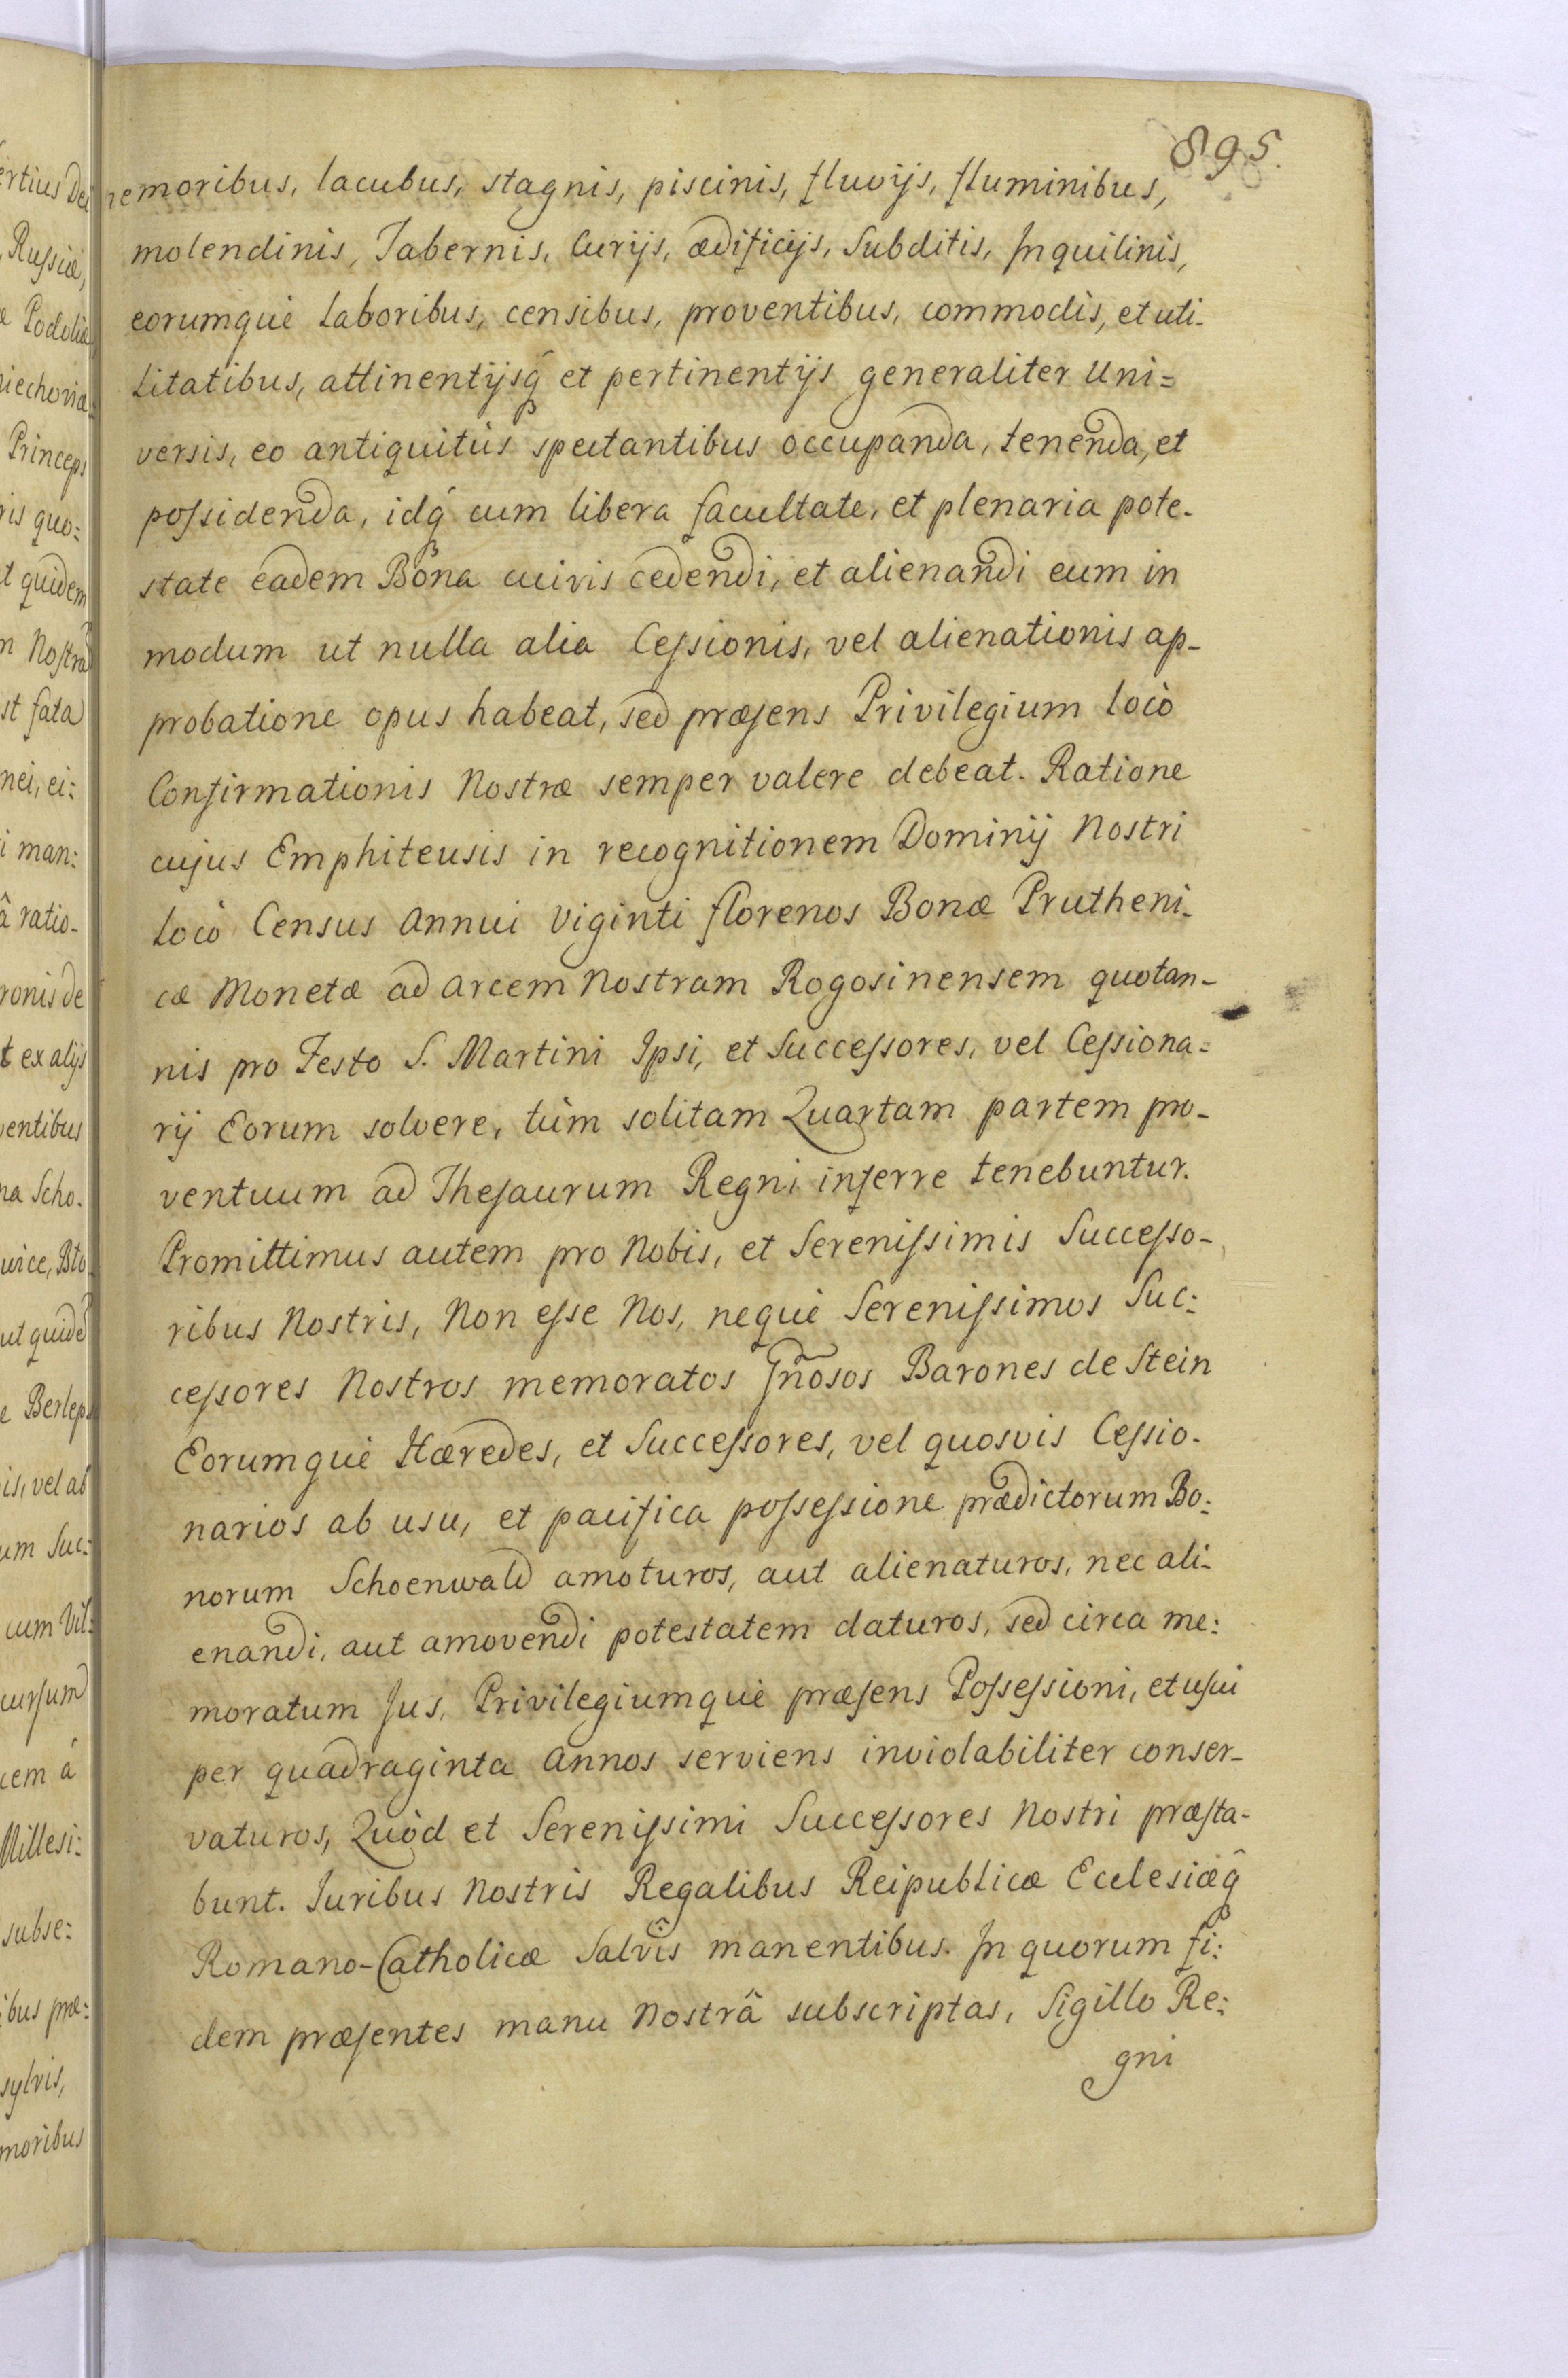 895.
nemoribus, lacubus, stagnis, piscinis, fluvijs, fluminibus,
molendinis, Tabernis, Curijs, ædificijs, Subditis, Inquilinis,
eorumquè Laboribus, censibus, proventibus, commodis, et uti-
Litatibus, attinentijsq́ et pertinentijs generaliter Uni=
versis, eo antiquitùs spectantibus occupanda, tenenda, et
poſsidenda, idq́ cum libera facultate, et plenaria pote-
state eadem Bona cuivis cedendi, et alienandi eum in
modum ut nulla alia Ceſsionis, vel alienationis ap-
probatione opus habeat, sed præſens Privilegium locò
Confirmationis Nostræ semper valere debeat. Ratione
cujus Emphiteusis in recognitionem Dominij Nostri
Locò Census Annui Viginti florenos Bonæ Prutheni-
cæ Monetæ ad Arcem Nostram Rogosinensem quotan-
nis pro Festo S. Martini Ipsi, et Succeſsores, vel Ceſsiona=
rij Eorum solvere, tùm solitam Quartam partem pro-
ventuum ad Theſaurum Regni inferre tenebuntur.
Promittimus autem pro Nobis, et Sereniſsimis Succeſso-
ribus Nostris, Non eſse Nos, nequè Sereniſsimos Suc:
ceſsores Nostros memoratos Gn̄osos Barones de Stein
Eorumquè Hæredes, et Succeſsores, vel quosvis Ceſsio-
narios ab usu, et pacifica poſseſsione prædictorum Bo:
norum Schoenwald amoturos, aut alienaturos, nec ali-
enandi, aut amovendi potestatem daturos, sed circa me:
moratum Jus, Privilegiumquè præſens Poſseſsioni, et uſui
per quadraginta Annos serviens inviolabiliter conser-
vaturos, Quòd et Sereniſsimi Succeſsores Nostri præſta-
bunt. Juribus Nostris Regalibus Reipublicæ Ecclesiæq́
Romano-Catholicæ Salvis manentibus. In quorum fi:
dem præſentes manu Nostrâ subscriptas, Sigillo Re:
gni
ertius Dei
Ruſsiæ,
Podoliæ
Princeps
ris quo:
t quidem
Nostra
st fata
nei, ei:
i man:
â ratio-
ronis de
t ex alijs
ventibus
na Scho-
ut quidē
Berleps
is, vel ab
um Suc:
cum Vil:
curſum
cem â
Milleſi:
subse:
ibus præ:
sylvis,
moribus